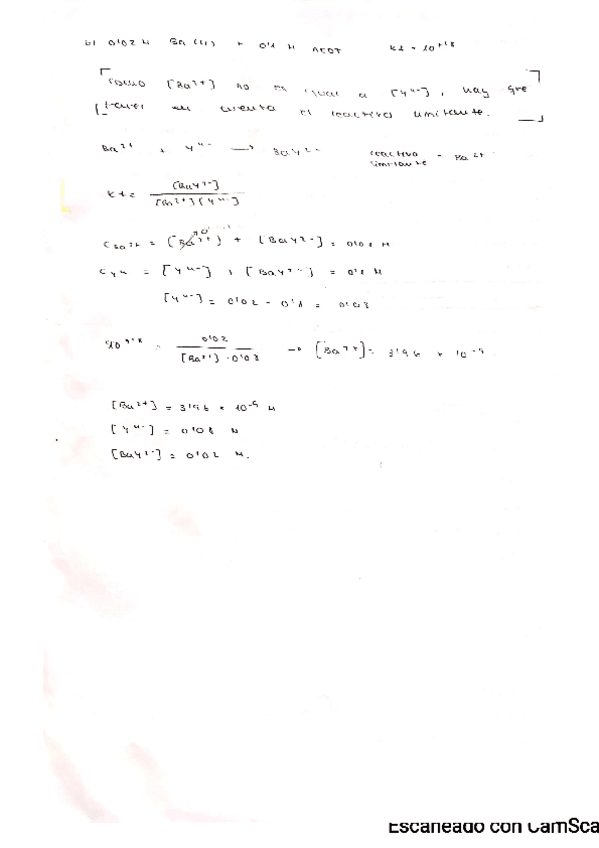 b) 0'02 M Ba (II) + 0'1 M AEDT Kf = 10⁷'⁸
Como [Ba²⁺] no es igual a [Y⁴⁻], hay que
tener en cuenta el reactivo limitante.
Ba²⁺ + Y⁴⁻ → BaY²⁻ reactivo limitante = Ba²⁺
Kf = [BaY²⁻] / [Ba²⁺][Y⁴⁻]
C Ba²⁺ = [Ba²⁺] + [BaY²⁻] = 0'02 M
C Y⁴⁻ = [Y⁴⁻] + [BaY²⁻] = 0'1 M
[Y⁴⁻] = 0'02 - 0'1 = 0'08
= 0'02 / [Ba²⁺] · 0'08 → [Ba²⁺] = 3'96 × 10⁻⁹
[Ba²⁺] = 3'96 × 10⁻⁹ M
[Y⁴⁻] = 0'08 M
[BaY²⁻] = 0'02 M.
Escaneado con CamSca